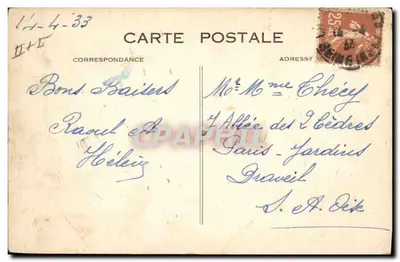 14-4-33
II + I
CARTE POSTALE
CORRESPONDANCE
ADRESSE
25
Bons Baisers
Raoul A
Hélène
Mr Mme Thécy
7 Allée des 2 Cèdres
Paris-Jardins
Draveil
S. A. Oise
CPAPHIL